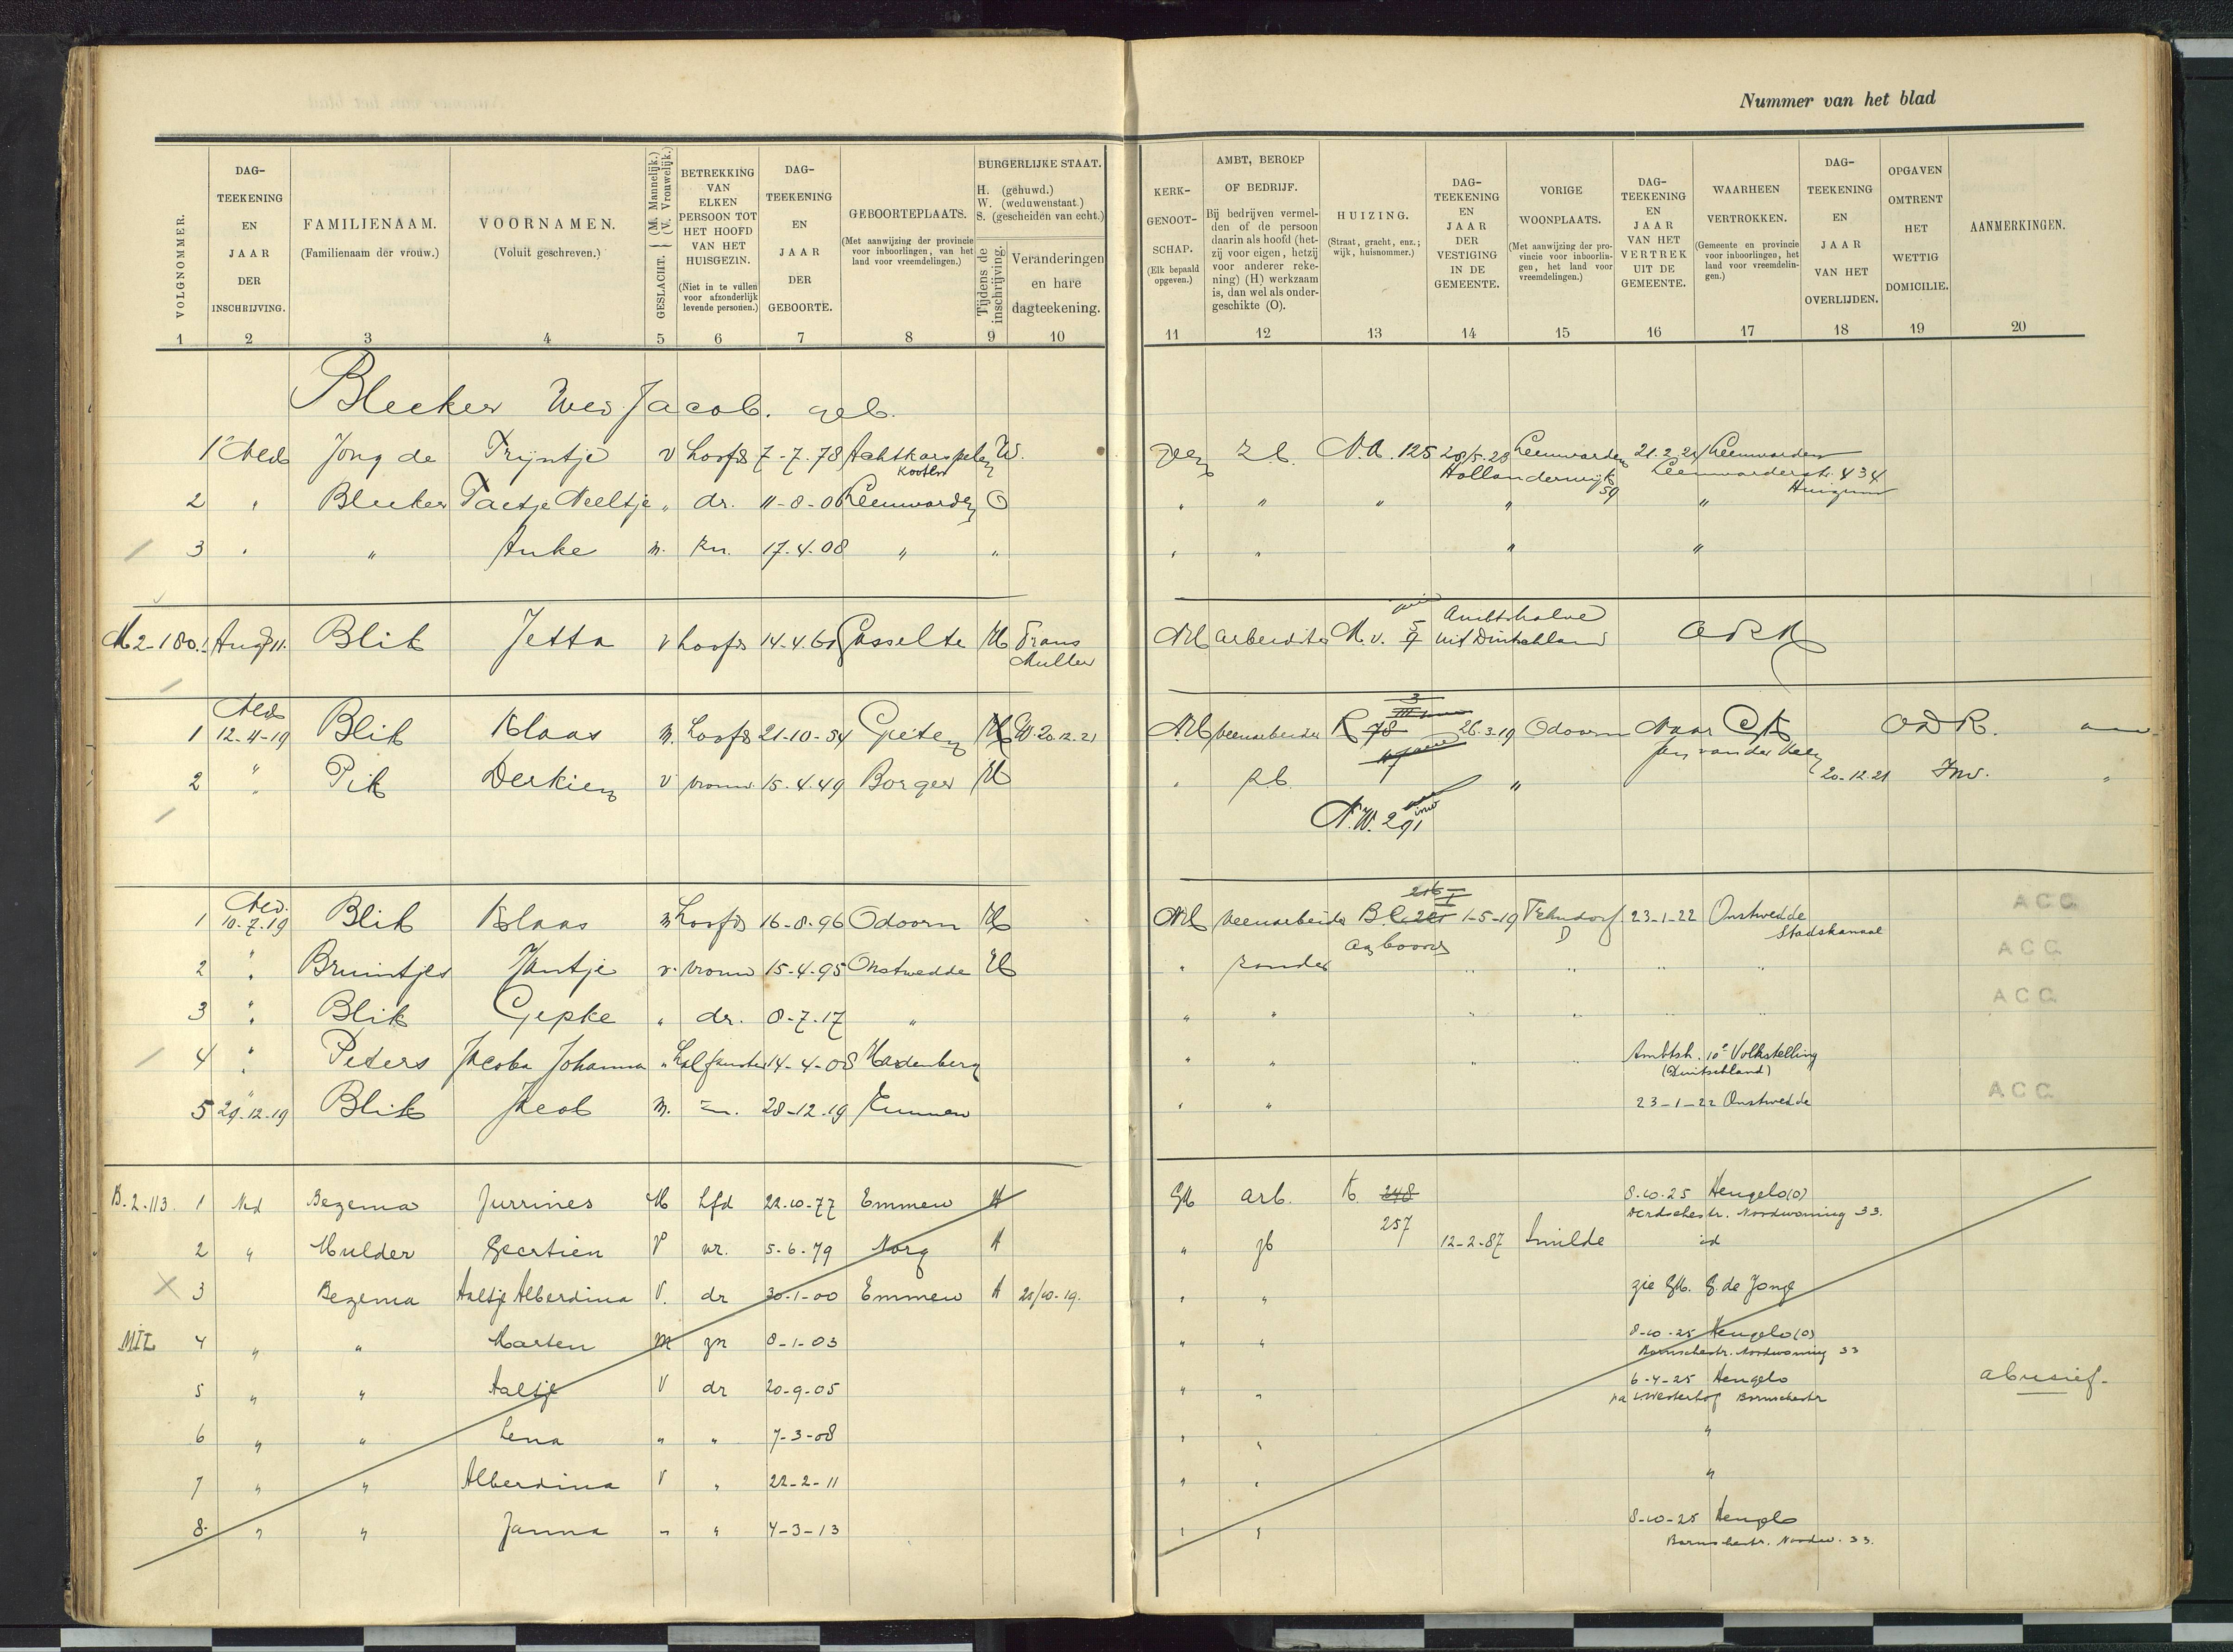 Nummer van het blad
VOLGNOMMER. DAG-TEEKENING EN JAAR DER INSCHRIJVING. FAMILIENAAM. (Familienaam der vrouw.) VOORNAMEN. (Voluit geschreven.) GESLACHT. (M. Mannelijk.) (V. Vrouwelijk.) BETREKKING VAN ELKEN PERSOON TOT HET HOOFD VAN HET HUISGEZIN. (Niet in te vullen voor afzonderlijk levende personen.) DAG-TEEKENING EN JAAR DER GEBOORTE. GEBOORTEPLAATS. (Met aanwijzing der provincie voor inboorlingen, van het land voor vreemdelingen.) BURGERLIJKE STAAT. H. (gehuwd.) W. (weduwenstaat.) S. (gescheiden van echt.) Tijdens de inschrijving. Veranderingen en hare dagteekening.
KERK-GENOOT-SCHAP. (Elk bepaald opgeven.) AMBT, BEROEP OF BEDRIJF. Bij bedrijven vermelden of de persoon daarin als hoofd (hetzij voor eigen, hetzij voor anderer rekening) (H) werkzaam is, dan wel als ondergeschikte (O). HUIZING. (Straat, gracht, enz.; wijk, huisnommer.) DAG-TEEKENING EN JAAR DER VESTIGING IN DE GEMEENTE. VORIGE WOONPLAATS. (Met aanwijzing der provincie voor inboorlingen, het land voor vreemdelingen.) DAG-TEEKENING EN JAAR VAN HET VERTREK UIT DE GEMEENTE. WAARHEEN VERTROKKEN. (Gemeente en provincie voor inboorlingen, het land voor vreemdelingen.) DAG-TEEKENING EN JAAR VAN HET OVERLIJDEN. OPGAVEN OMTRENT HET WETTIG DOMICILIE. AANMERKINGEN.
1 2 3 4 5 6 7 8 9 10 11 12 13 14 15 16 17 18 19 20
Bleeker Wed Jacob. geb.
1 Ned Jong de Trijntje v hoofd 7-7.78 Achtkarspelen W. geen z.b. N.A. 125 Leeuwarden 21.2.21 Leeuwarden
Kooten Hollanderwijk 59 Leeuwarderstr. 434 Huizum
2 " Bleeker Taetje Neeltje " dr. 11-8-06 Leeuwarden O " " " " "
3 " " Anke m. zn. 17.4.08 " " " " " "
M 2-180. 1 Aug 11. Blik Jetta v hoofd 14.4.61 Gasselte H Frans Muller NH arbeidster M.v. Ambtshalve uit Duitschland
1 Ned 12-11-19 Blik Klaas m. hoofd 21-10-54 Gieten W 20.12.21 NH veenarbeider R 78 26.3.19 Odoorn Naar
2 " Pik Derkien v vrouw 15.4.49 Borger H " z.b. " 20-12.21 "
N.W. 291
1 Ned. 10.7.19 Blik Klaas m hoofd 16-8-96 Odoorn H NH veenarbeider 1-5-19 23-1-22 Onstwedde Stadskanaal ACC
2 " Bruintjes Jantje v. vrouw 15-4-95 Onstwedde H " zonder " " " " ACC
3 " Blik Gepke " dr. 8-7-17 " " " " " " " ACC
4 " Peters Jacoba Johanna " 14-4-08 Hardenberg " " " " Ambtsh. 10e Volkstelling
(Duitschland)
5 29-12-19 Blik Jacob m. zn. 28-12-19 Emmen " " 23-1-22 Onstwedde ACC
B. 2. 113. 1 Ned Bezema Jurrines M hfd 22-10-77 Emmen H GK arb. K. 248 8-10-25 Hengelo(O)
257 Noordwoning 33.
2 " Mulder Geertien V vr. 5-6-79 Norg H " zb 12-2-87 Smilde id
3 Bezema Aaltje Alberdina V. dr 30-1-00 Emmen H 21/10-19. " " zie GK. G. de Jonge
MIL 4 " " Marten m zn 8-1-03 " " 8-10-25 Hengelo(O)
Bornschestr. Noordwoning 33
5 " " Aaltje V dr 20-9-05 " " 6-4-25 Hengelo abusief-
p/a Westerhof Bornschestr
6 " " Lena " " 7-3-08 " " "
7 " " Alberdina V " 22-2-11 " " "
8. " " Janna " " 4-3-13 " " 8-10-25 Hengelo
Bornschestr. Noordw. 33.